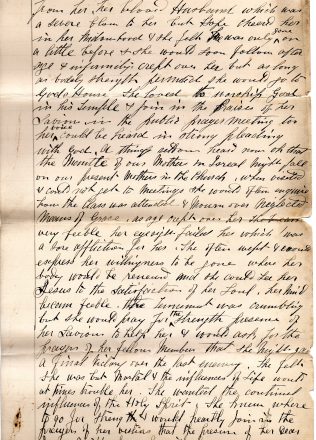 from her, her beloved Husband which was
a severe blow to her but Hope cheered her
in her Widowhood & she felt He was only gone
a little before & she would soon follow after
age & infirmity crept over her but as long
as bodily strength permitted she would go to
Gods House. She loved to worship God
in his Temple & join in the Praises of her
Saviour in the public prayer meeting too
her voice could be heard in strong pleading
with God. A thing seldom heard now oh that
the Mantle of our Mother in Israel might fall
on our present Mothers in the Church, when visited
& could not get to Meetings she would often enquire
how the Class was attended & Mourn over neglected
Means of Grace, as age crept over her
very feeble her eyesight failed her which was
a sore affliction for her. She often wept &
express her willingness to be gone where her
body would be renewed and she could see her
Jesus to the Satisfaction of her Soul, her Mind
became feeble the tenement was crumbling
but she would pray for the Strength & presence of
her Saviour to help her & would ask for the
prayers of her fellow Members that she might
a final victory over the last enemy. She felt
She was but Mortal & the influences of Life would
at times trouble her. She wanted the continual
influences of the Holy Spirit. She knew where
to go for Strength & would heartily join in the
prayers of her visitors that the presence of her dear